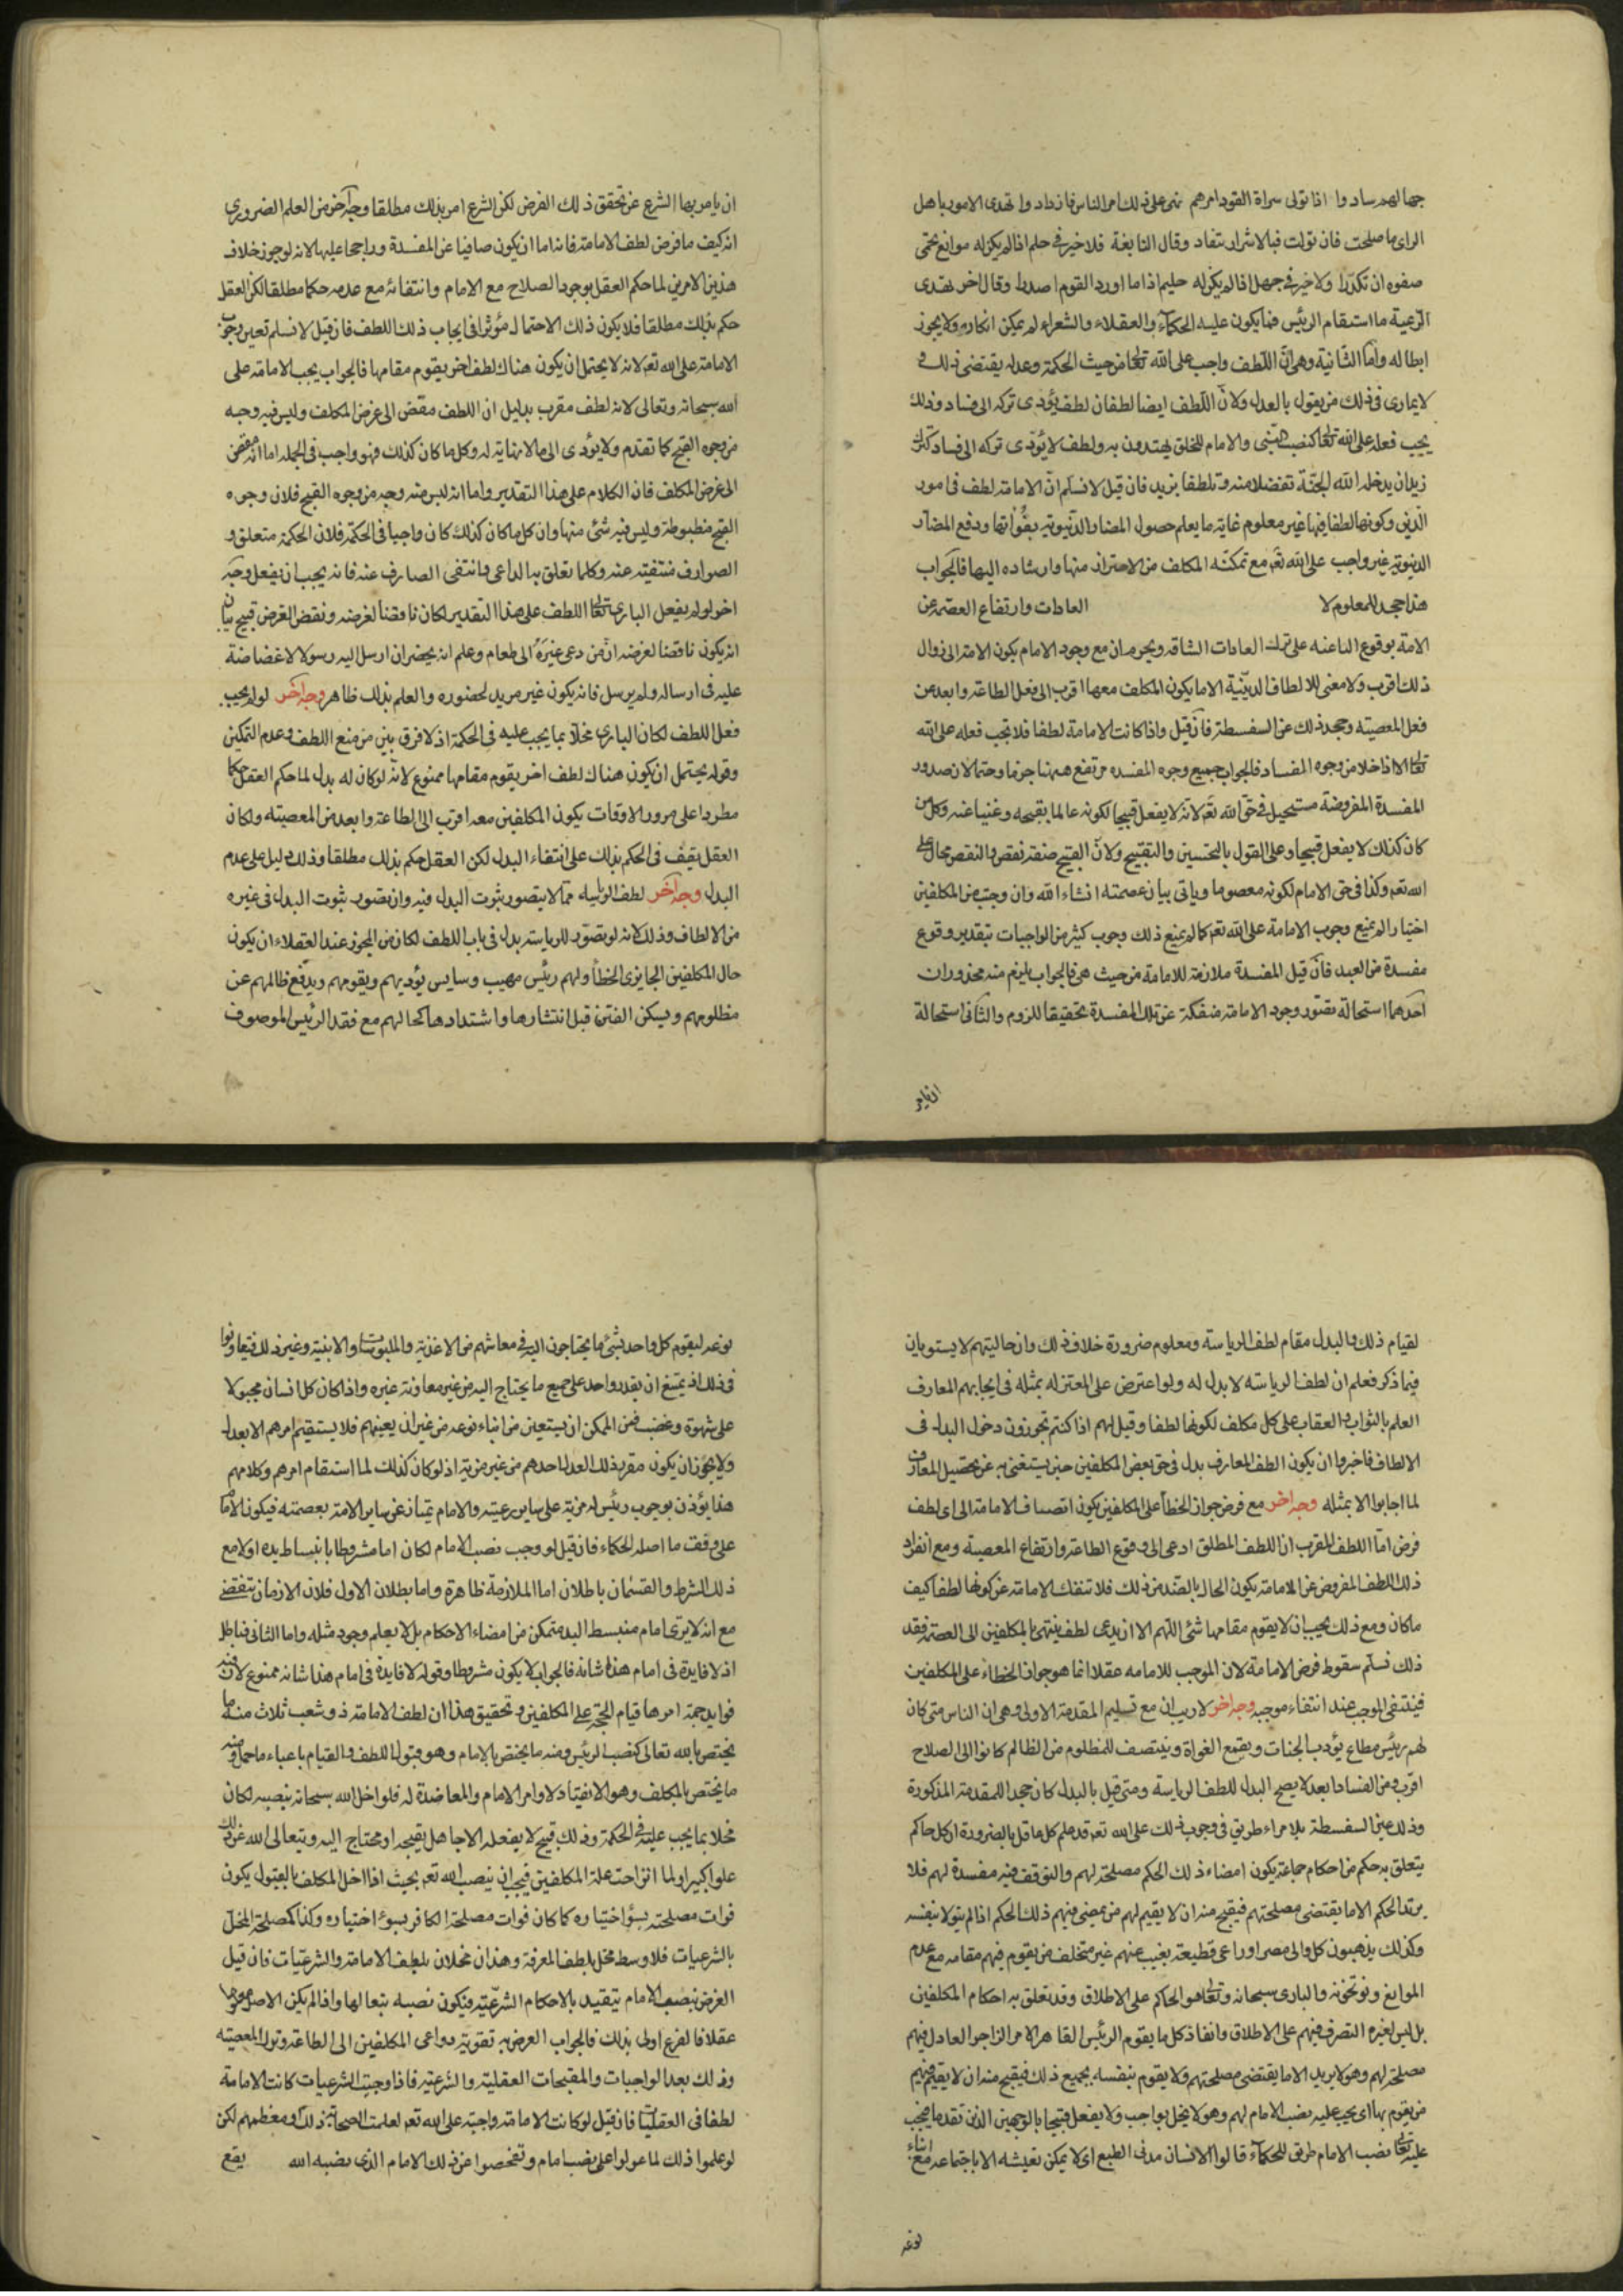 جهالهم سادوا اذا تولى سراة القوم امرهم نمى على ذلك امر الناس فازدادوا تهدى الامور باهل
الراى ما صلحت فان تولت فبالاشرار تنقاد وقال النابغة فلا خير فى حلم اذا لم يكن له موانع تحمى
صفوه ان تكدرا ولا خير فى جهل اذا لم يكن له حليم اذا ما اورد القوم اصدرا وقال اخر تهتدى
الرعية ما استقام الرئيس فما يكون عليه الحكماء والعقلاء والشعراء لم يمكن انكاره ولا يجوز
ابطاله واما الثانية وهى ان اللطف واجب على الله تعالى من حيث الحكمة وعدله يقتضى ذلك و
لا يمارى فى ذلك من يقول بالعدل ولان اللطف ايضا لطفان لطف يؤدى تركه الى فساد وذلك
يجب فعله على الله تعالى كنصب النبى والامام للخلق يهتدون به ولطف لا يؤدى تركه الى فساد كترك
زيد ان يدخله الله الجنة تفضلا منه وتلطفا بزيد فان قيل لا نسلم ان الامامة لطف فى امور
الدين وكونها لطفا فيها غير معلوم غاية ما يعلم حصول المضار الدنيوية بفواتها ودفع المضار
الدنيوية غير واجب على الله تعه مع تمكنه المكلف من الاحتراز منها وارشاده اليها فالجواب
هذا جحد للمعلوم لا العادات وارتفاع العصمة عن
الامة بوقوع الناعنه على ترك العادات الشاقه ويحرم ان مع وجود الامام يكون الامة الى زوال
ذلك اقرب ولا معنى للالطاف الدينية الا ما يكون المكلف معها اقرب الى فعل الطاعة وابعد من
فعل المعصية وجحد ذلك عن السفسطة فان قيل واذا كانت الامامة لطفا فلا تجب فعله على الله
تعالى الا اذا خلا من وجوه المفساد فالجواب جميع وجوه المفسده مرتفع ههنا جزما وحتما لان صدور
المفسدة المفروضة مستحيل فى حق الله تعه لانه لا يفعل قبيحا لكونه عالما بقبحه وغنيا عنه وكل من
كان كذلك لا يفعل قبيحا وعلى القول بالتحسين والتقبيح ولان القبيح صفة نقص والنقص محال على
الله تعه وكذا فى حق الامام لكونه معصوما وياتى بيان عصمته انشاء الله وان وجبت من المكلفين
اختيارا لم يمنع وجوب الامامة على الله تعه كما لم يمنع ذلك وجوب كثير من الواجبات بتقدير وقوع
مفسدة من العبد فان قيل المفسدة ملازمة للامامة من حيث هى فالجواب يلزم منه محذوران
احدهما استحالة تصور وجود الامامة منفكة عن تلك المفسدة تحقيقا للزوم والثانى استحالة
ان يامر
ان يامر بها الشرع عن تحقق ذلك الفرض لكن الشرع امر بذلك مطلقا وجه آخر من العلم الضرورى
انه كيف ما فرض لطف الامامة فانه اما ان يكون صافيا عن المفسدة وراجحا عليها لانه لو جوز خلاف
هذين الامرين لما حكم العقل بوجود الصلاح مع الامام وانتفائه مع عدمه حكما مطلقا لكن العقل
حكم بذلك مطلقا فلا يكون ذلك الاحتمال مؤثرا فى ايجاب ذلك اللطف فان قيل لا نسلم تعين وجوب
الامامة على الله تعه لانه لا يحتمل ان يكون هناك لطف اخر يقوم مقامها فالجواب يجب الامامة على
الله سبحانه وتعالى لانه لطف مقرب بدليل ان اللطف مقض الى غرض المكلف وليس فيه وجه
من وجوه القبح كما تقدم ولا يؤدى الى ما لا نهاية له وكل ما كان كذلك فهو واجب فى الجمله اما انه مفض
الى غرض المكلف فان الكلام على هذا التقدير واما انه ليس فيه وجه من وجوه القبح فلان وجوه
القبح مضبوطة وليس فيه شئ منها وان كل ما كان كذلك كان واجبا فى الحكمة فلان الحكمة متعلق و
الصوارف منتفيته عنه وكلما تعلق به الداعى وانتفى الصارف عنه فانه يجب ان يفعل وجه
اخر لو لم يفعل البارى تعالى اللطف على هذا التقدير لكان ناقضا لغرضه ونقض الغرض قبيح بيان
انه يكون ناقضا لغرضه ان من دعى غيره الى طعام وعلم انه يحضر ان ارسل اليه رسولا لا غضاضة
عليه فى ارساله ولم يرسل فانه يكون غير مريد لحضوره والعلم بذلك ظاهر وجه آخر لو لم يجب
فعل اللطف لكان البارى مخلا بما يجب عليه فى الحكمة اذ لا فرق بين من منع اللطف وعدم التمكين
وقوله يحتمل ان يكون هناك لطف اخر يقوم مقامها ممنوع لانه لو كان له بدل لما حكم العقل حكما
مطردا على مرور الاوقات يكون المكلفين معه اقرب الى الطاعة وابعد من المعصية ولكان
العقل يقف فى الحكم بذلك على انتفاء البدل لكن العقل حكم بذلك مطلقا وذلك دليل على عدم
البدل وجه آخر لطف الرياسه مما لا يتصور ثبوت البدل فيه وان تصور ثبوت البدل فى غيره
من الالطاف وذلك لانه لو تصور للرياسة بدل فى باب اللطف لكان من المجوز عند العقلاء ان يكون
حال المكلفين الجايزى الخطأ ولهم رئيس مهيب وسايس يؤديهم ويقومهم ويدفع ظالمهم عن
مظلومهم ويسكن الفتن قبل انتشارها واشتدادها كحالهم مع فقد الرئيس الموصوف
لقيام ذلك البدل مقام لطف الرياسة ومعلوم ضرورة خلاف ذلك وان حاليتهم لا يستويان
فيما ذكر فعلم ان لطف الرياسة لا بدل له ولو اعترض على المعتزله بمثله فى ايجابهم المعارف
العلم بالثواب والعقاب على كل مكلف لكونها لطفا وقيل لهم اذا كنتم تجوزون دخول البدل فى
الالطاف فاخبروا ان يكون الطف المعارف بدل فى حق بعض المكلفين حين يستغنى به عن تحصيل المعارف
لما اجابوا الا بمثله وجه اخر مع فرض جواز الخطأ على المكلفين يكون اتصاف الامامة الى اى لطف
فرض اما اللطف المقرب ان اللطف المطلق ادعى الى وقوع الطاعة وارتفاع المعصية ومع انفراد
ذلك اللطف المفروض عن الامامة يكون الحال بالضد من ذلك فلا تنفك الامامة عن كونها لطفا كيف
ما كان ومع ذلك يجب ان لا يقوم مقامها شئ اللهم الا ان يدعى لطف ينتهى بالمكلفين الى العصمة فقد
ذلك نسلم سقوط فرض الامامة لان الموجب للامامه عقلا انما هو جواز الخطاء على المكلفين
فينتفى الموجب عند انتفاء موجبه وجه اخر لا ريب ان مع تسليم المقدمة الاولى وهى ان الناس متى كان
لهم رئيس مطاع يؤدب الجنات ويقمع الغواة وينتصف للمظلوم من الظالم كانوا الى الصلاح
اقرب ومن الفساد ابعد لا يصح البدل للطف الرياسة ومتى قيل بالبدل كان جحد اللمقدمة المذكورة
وذلك عين السفسطة بلا مراء طريق فى وجوب ذلك على الله تعه قد علم كل عاقل بالضرورة ان كل حاكم
يتعلق به حكم من احكام جماعة يكون امضاء ذلك الحكم مصلحة لهم والتوقف فيه مفسدة لهم فلا
يريد الحكم الا ما يقتضى مصلحتهم فيقبح منه ان لا يقيم لهم من يمضى فيهم ذلك الحكم اذا لم يتولا بنفسه
وكذلك يذهبون كل والى مصر اوراعى قطيعة يغيب عنهم غير متخلف من يقوم فيهم مقامه مع عدم
الموانع ونو تخونه والبارى سبحانه وتعالى هو الحاكم على الاطلاق وقد تعلق به احكام المكلفين
بل ليس لغيره التصرف فيهم على الاطلاق وانفاذ كل ما يقوم الرئيس القاهر الامر الزاجر العادل فيهم
مصلحة لهم وهو لا يريد الا ما يقتضى مصلحتهم ولا يقوم بنفسه بجميع ذلك فيقبح منه ان لا يقيم فيهم
من يقوم بها اى يجب عليه نصب الامام لهم وهو لا يخل بواجب ولا يفعل قبيحا بالوجهين الذين تقدما فيجب
عليه تعالى نصب الامام طريق للحكماء قالوا الانسان مدنى الطبع اى لا يمكن تعيشه الا باجتماعه مع ابناء
نوعه
نوعه ليقوم كل واحد بشئ مما يحتاجون اليه فى معاشهم من الاغذية والملبوسات والابنية وغير ذلك فيتعاونوا
فى ذلك اذ يمتنع ان يقدر واحد على جميع ما يحتاج اليه من غير معاونة غيره واذا كان كل انسان مجبولا
على شهوة وغضب فمن الممكن ان يستعين من ابناء نوعه من غير ان يعينهم فلا يستقيم امرهم الا بعدل
ولا يجوز ان يكون مقرر ذلك العدل احدهم من غير مزية اذ لو كان كذلك لما استقام امرهم وكلامهم
هذا يؤذن بوجوب رئيس له مزية على ساير رعيته والامام يمتاز عن ساير الامة بعصمته فيكون الامام
على وقفت ما اصله الحكماء فان قيل لو وجب نصب الامام لكان اما مشروطا بانبساط يده اولا مع
ذلك الشرط والقسمان باطلان اما الملازمة ظاهرة واما بطلان الاول فلان الازمان تنقضى
مع انه لا يرى امام منبسط اليد متمكن من امضاء الاحكام بل لا يعلم وجود مثله واما الثانى فباطل
اذ لا فايدة فى امام هذا شانه فالجواب لا يكون مشروطا وقوله لا فايدة فى امام هذا شانه ممنوع لان فيه
فوايد جمة امرها قيام الحجة على المكلفين وتحقيق هذا ان لطف الامامة ذو شعب ثلاث منها ما
يختص بالله تعالى كنصب الرئيس ومنه ما يختص بالامام وهو قبول اللطف والقيام باعباء ما حمل ومنه
ما يختص بالمكلف وهو الانقياد لاوامر الامام والمعاضدة له فلو اخل الله سبحانه بنصبه لكان
مخلا بما يجب عليه فى الحكمة وذلك قبيح لا يفعله الا جاهل بقبحه او محتاج اليه ويتعالى الله عن ذلك
علوا كبيرا ولما انزاحت علة المكلفين فيجب ان ينصب الله تعه بحيث اذا اخل المكلف بالقبول يكون
فوات مصلحته بسؤ اختياره كما كان فوات مصلحة الكافر بسوء اختياره وكذا كمصلحة المخل
بالشرعيات فلا وسط مخل بلطف المعرفة وهذان مخلان بلطف الامامة والشرعيات فان قيل
الغرض بنصب الامام يتقيد بالاحكام الشرعية فيكون نصبه تبعا لها واذا لم يكن الاصل موجودا
عقلا فالفرع اولى بذلك فالجواب الغرض به تقوية دواعى المكلفين الى الطاعة وترك المعصية
وذلك بعد الواجبات والمقبحات العقلية والشرعية فاذا وجبت الشرعيات كانت الامامة
لطفا فى العقليات فان قيل لو كانت الامامة واجبة على الله تعه لعلمت الصحابة ذلك ومعظمهم لكن
لو علموا ذلك لما عولوا على نصب امام وتفحصوا عن ذلك الامام الذى نصبه الله يقع